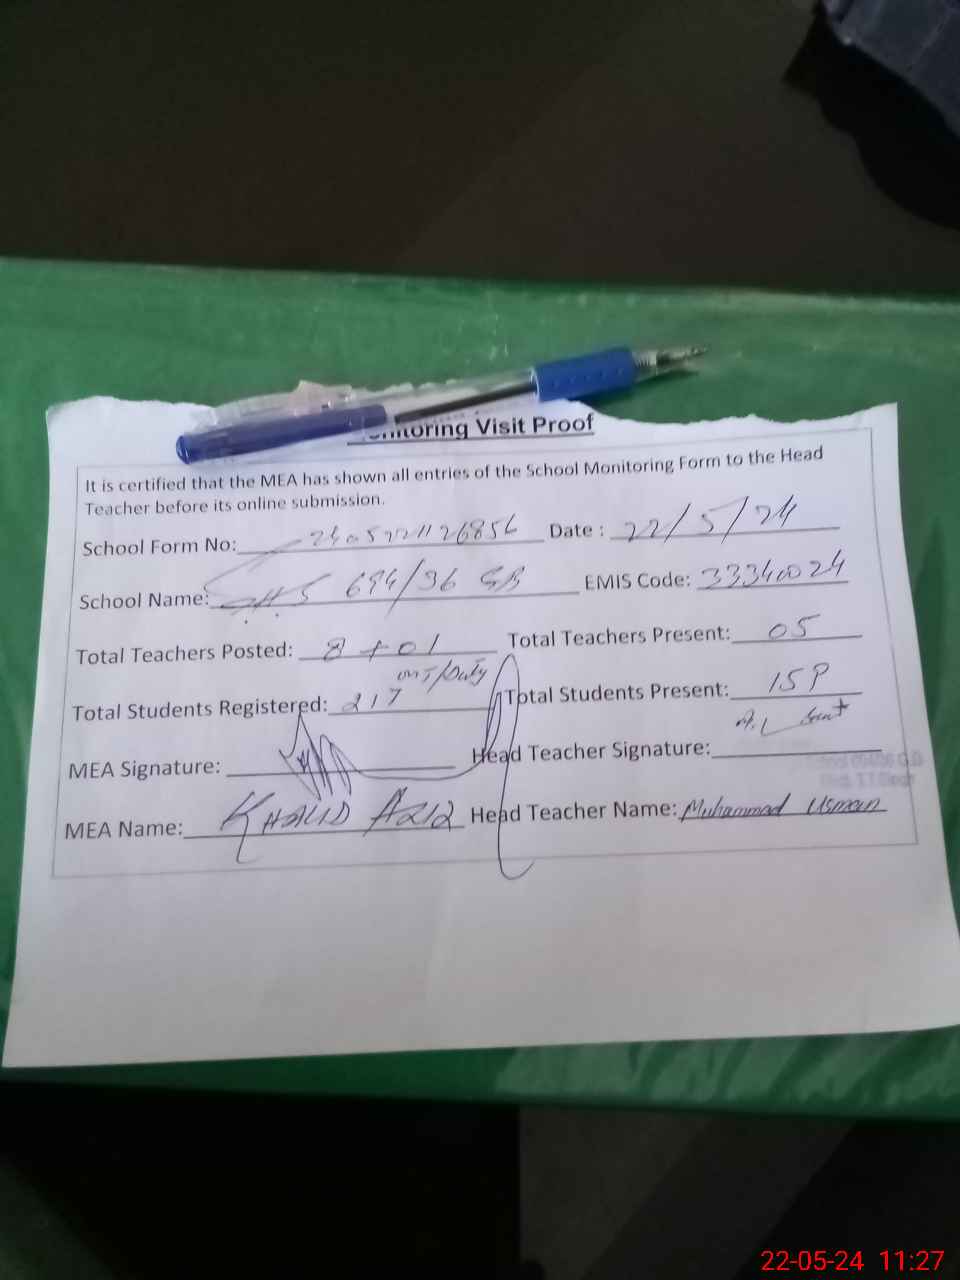 Monitoring Visit Proof
It is certified that the MEA has shown all entries of the School Monitoring Form to the Head
Teacher before its online submission.
School Form No: Date : 22/5/24
School Name: 694/36 GB EMIS Code: 33340024
Total Teachers Posted: 8 + 01 Total Teachers Present: 05
on T/Duty
Total Students Registered: 217 Total Students Present: 159
MEA Signature: Head Teacher Signature:
MEA Name: KHALID AZIZ Head Teacher Name: Muhammad Usman
22-05-24 11:27